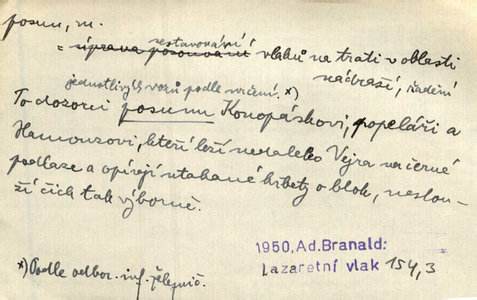 posun, m.
sestavování
= úprava posouvání vlaků na trati v oblasti
nádraží, řadění
jednotlivých vozů podle určení. x)
To dozorci posunu Konopáskovi, popeláři a
Hamouzovi, kteří leží nedaleko Vejra na černé
podlaze a opírají utahané hrbety o blok, neslou-
ží čich tak výborně.
1950, Ad. Branald:
Lazaretní vlak 154,3
x) Podle odbor. inf. železnič.